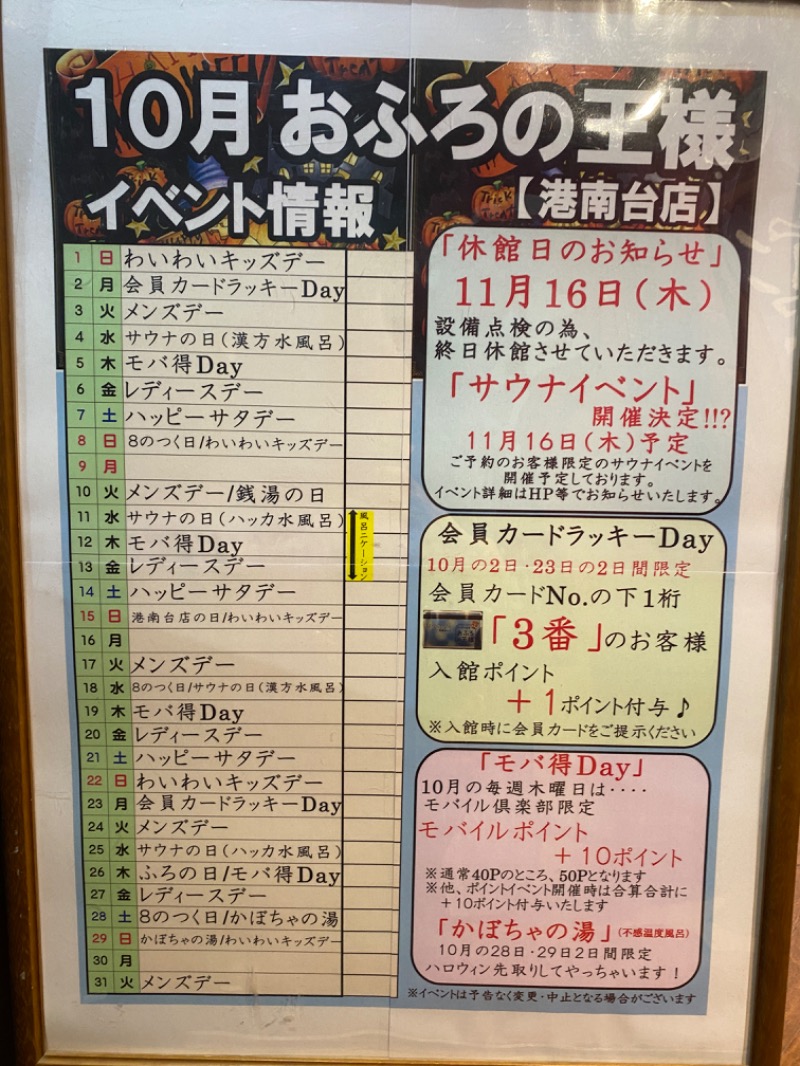 10月 おふろの王様
イベント情報
【港南台店】
1 日 わいわいキッズデー
2 月 会員カードラッキーDay
3 火 メンズデー
4 水 サウナの日(漢方水風呂)
5 木 モバ得Day
6 金 レディースデー
7 土 ハッピーサタデー
8 日 8のつく日/わいわいキッズデー
9 月
10 火 メンズデー/銭湯の日
11 水 サウナの日(ハッカ水風呂)
12 木 モバ得Day
13 金 レディースデー
風呂ニケーション
14 土 ハッピーサタデー
15 日 港南台店の日/わいわいキッズデー
16 月
17 火 メンズデー
18 水 8のつく日/サウナの日(漢方水風呂)
19 木 モバ得Day
20 金 レディースデー
21 土 ハッピーサタデー
22 日 わいわいキッズデー
23 月 会員カードラッキーDay
24 火 メンズデー
25 水 サウナの日(ハッカ水風呂)
26 木 ふろの日/モバ得Day
27 金 レディースデー
28 土 8のつく日/かぼちゃの湯
29 日 かぼちゃの湯/わいわいキッズデー
30 月
31 火 メンズデー
「休館日のお知らせ」
11月16日(木)
設備点検の為、
終日休館させていただきます。
「サウナイベント」
開催決定!!?
11月16日(木)予定
ご予約のお客様限定のサウナイベントを
開催予定しております。
イベント詳細はHP等でお知らせいたします。
会員カードラッキーDay
10月の2日・23日の2日間限定
会員カードNo.の下1桁
「3番」のお客様
入館ポイント
+1ポイント付与♪
※入館時に会員カードをご提示ください
「モバ得Day」
10月の毎週木曜日は‥‥
モバイル倶楽部限定
モバイルポイント
+10ポイント
※通常40Pのところ、50Pとなります
※他、ポイントイベント開催時は合算合計に
+10ポイント付与いたします
「かぼちゃの湯」(不感温度風呂)
10月の28日・29日2日間限定
ハロウィン先取りしてやっちゃいます!
※イベントは予告なく変更・中止となる場合がございます